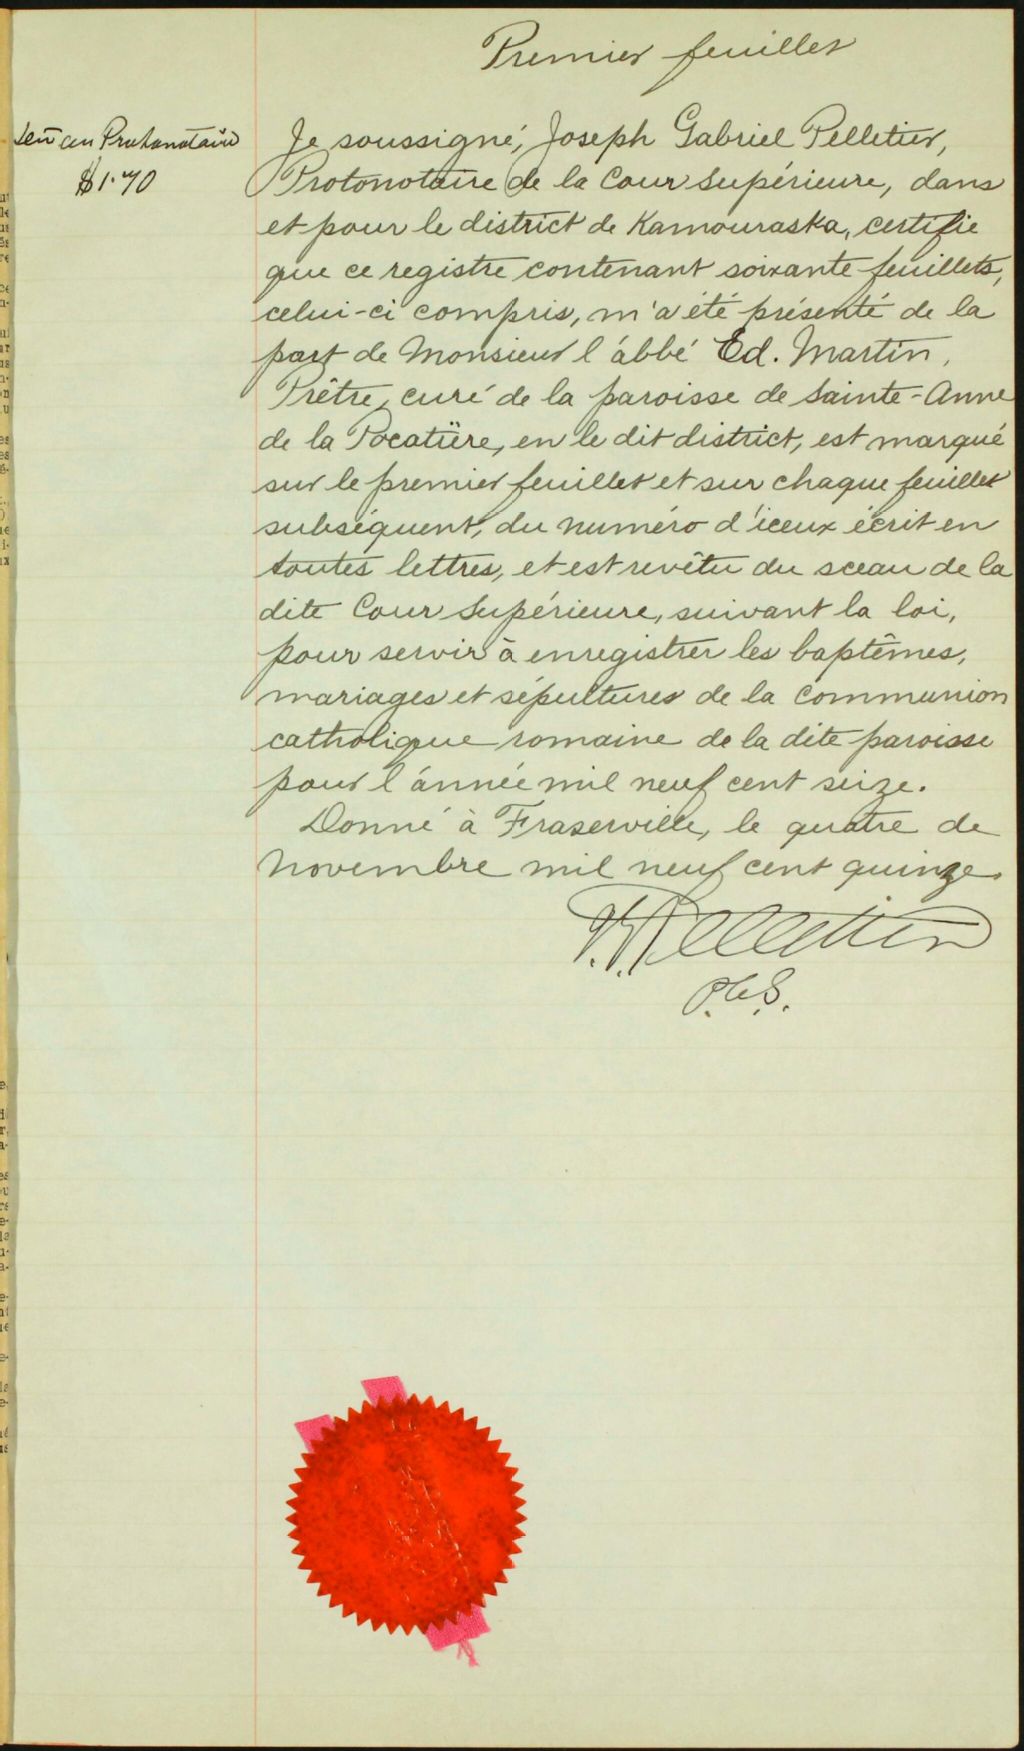 Premier feuillet
au Protonotaire
$1.70
Je soussigné, Joseph Gabriel Pelletier,
Protonotaire de la Cour Supérieure, dans
et pour le district de Kamouraska, certifie
que ce registre contenant soixante feuillets,
celui-ci compris, m'a été présenté de la
part de Monsieur l'abbé Ed. Martin,
Prêtre, curé de la paroisse de Sainte-Anne
de la Pocatière, en le dit district, est marqué
sur le premier feuillet et sur chaque feuillet
subséquent, du numéro d'iceux écrit en
toutes lettres, et est revêtu du sceau de la
dite Cour Supérieure, suivant la loi,
pour servir à enregistrer les baptêmes,
mariages et sépultures de la Communion
catholique romaine de la dite paroisse
pour l'année mil neuf cent seize.
Donné à Fraserville, le quatre de
Novembre mil neuf cent quinze.
J.G. Pelletier
P.C.S.